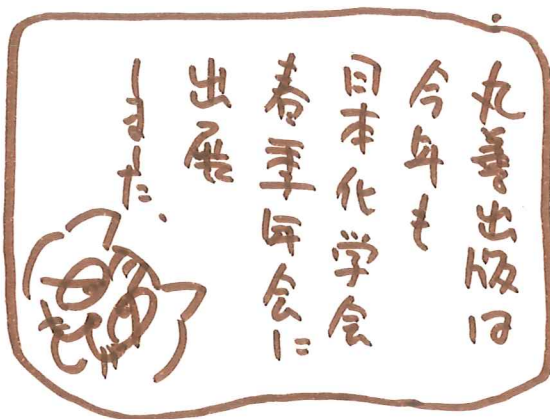 丸善出版は
今年も
日本化学会
春季年会に
出展
しました.